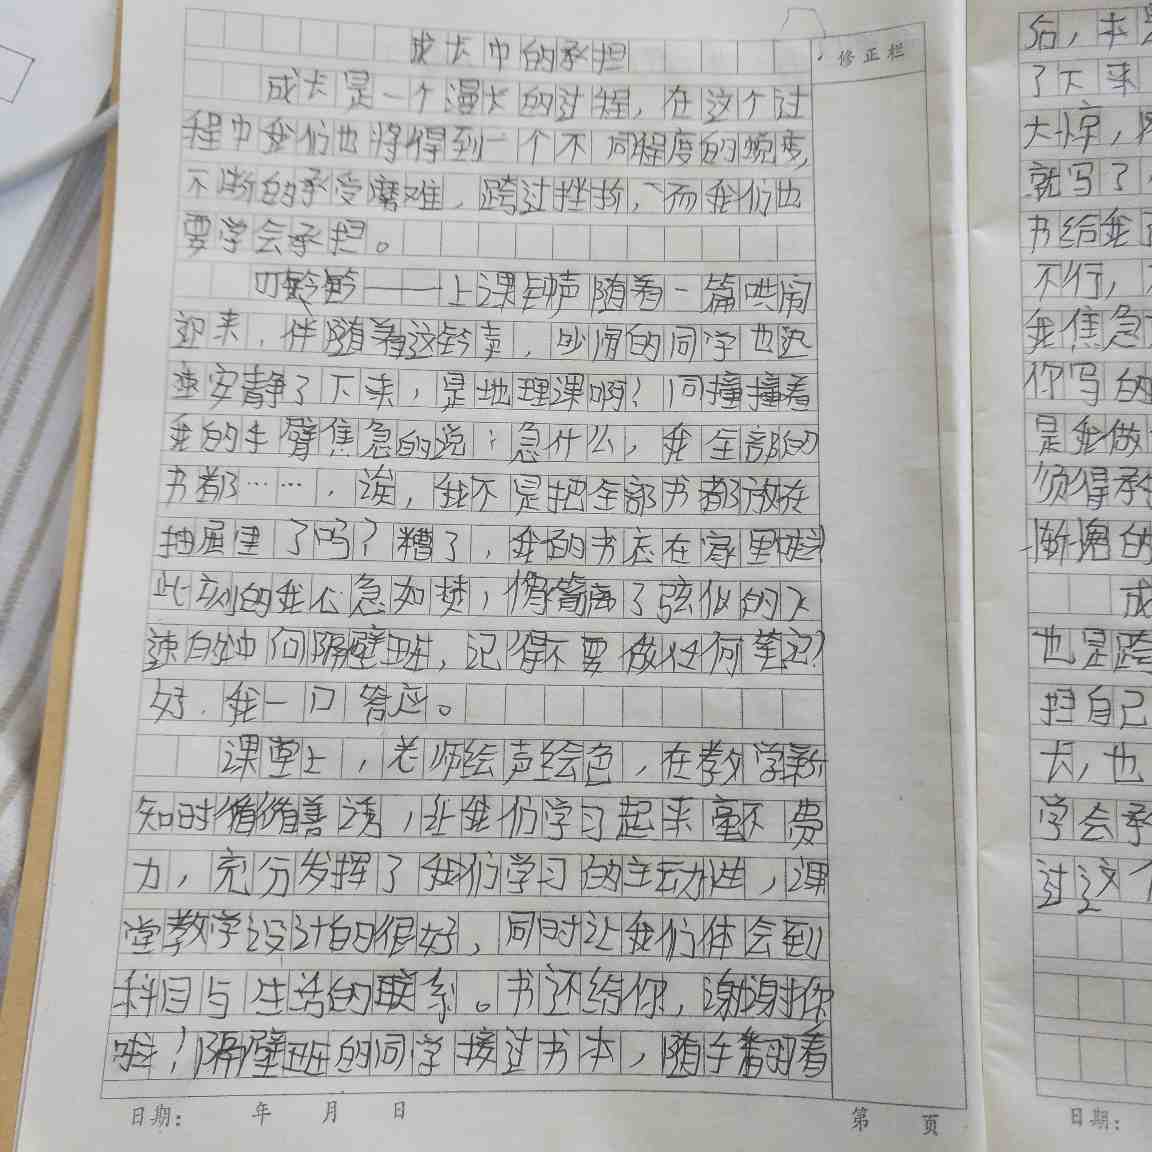 成长中的承担
修正栏
成长是一个漫长的过程，在这个过
程中我们也将得到一个不同程度的蜕变，
不断的承受磨难，跨过挫折，而我们也
要学会承担。
叮铃铃——上课钟声随着一篇哄闹
迎来，伴随着这铃声，吵闹的同学也迅
速安静了下来，是地理课啊？同撞撞着
我的手臂焦急的说：急什么，我全部的
书都……，诶，我不是把全部书都放在
抽屉里了吗？糟了，我的书忘在家里啦！
此刻的我心急如焚，像箭离了弦似的飞
速的冲向隔壁班，记得不要做任何笔记？
好．我一口答应。
课堂上，老师绘声绘色，在教学新
知时循循善诱，让我们学习起来毫不费
力，充分发挥了我们学习的主动性，课
堂教学设计的很好，同时让我们体会到
科目与生活的联系。书还给你，谢谢你
啦！隔壁班的同学接过书本，随手翻着
日期： 年 月 日
第 页
后，本
了下来
大惊，
就写了，
书给我
不行，
我焦急
你写的
是我做
须得承
渐愧的
成
也是跨
担自己
长，也
学会承
过这个
日期：